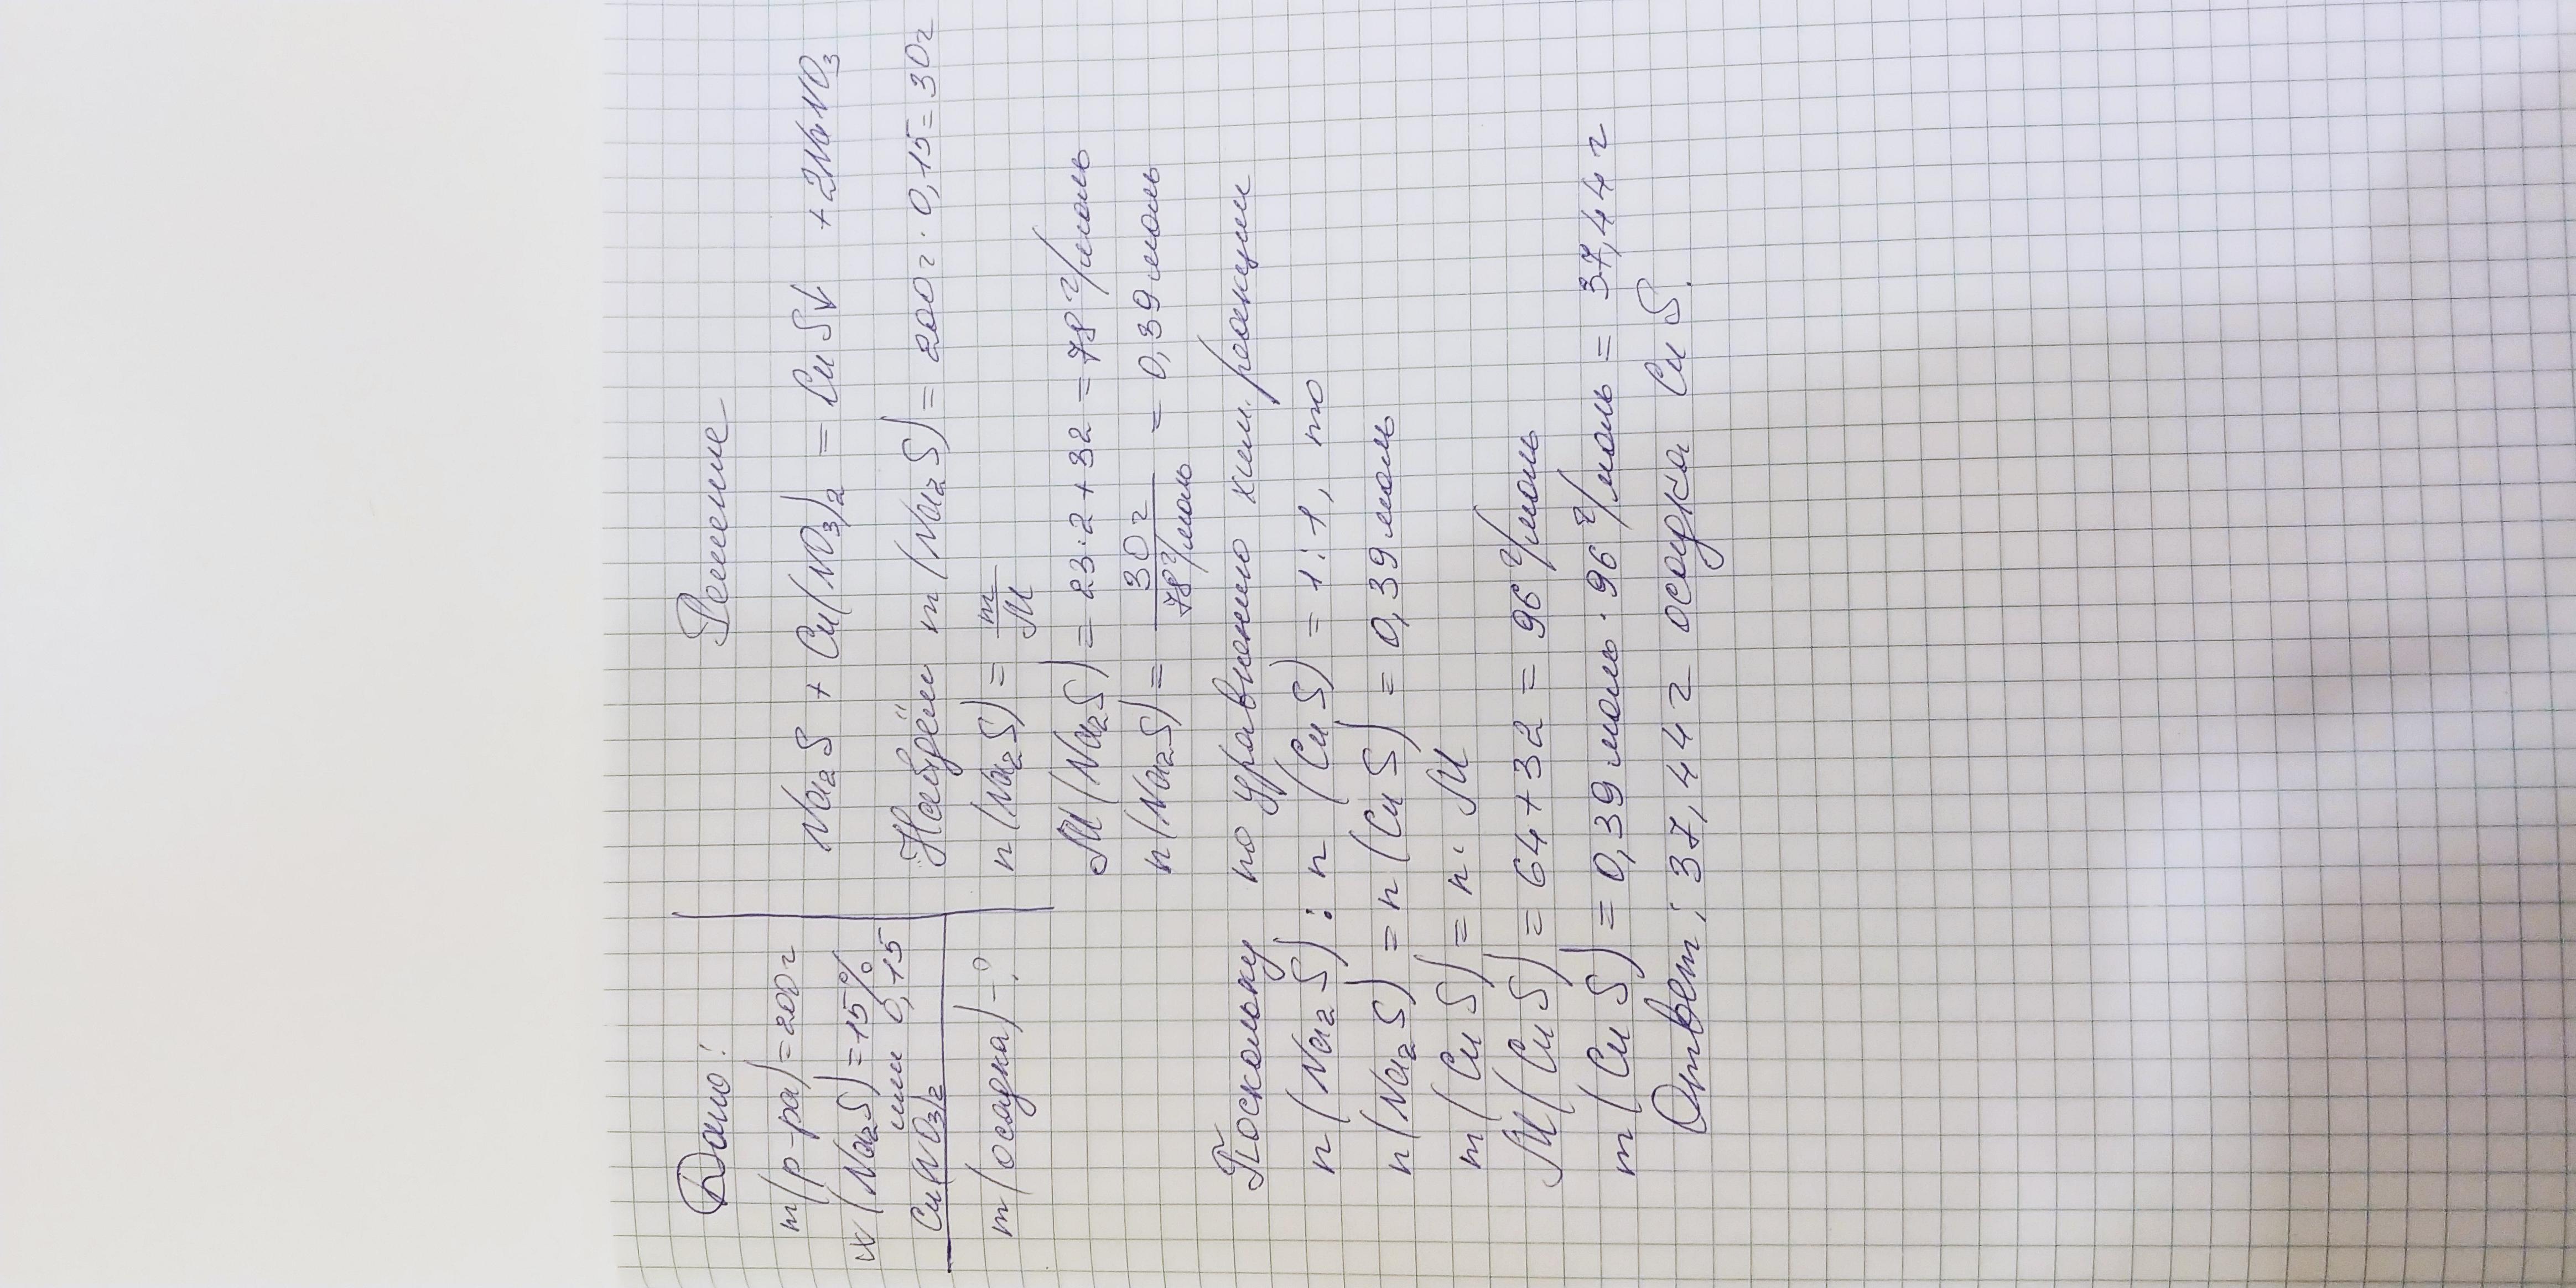 Дано:
m(р-ра)=200г
w(Na₂S)=15%
или 0,15
Cu(NO₃)₂
m(осадка)-?
Решение
Na₂S + Cu(NO₃)₂ = CuS↓ +2NaNO₃
Найдём m(Na₂S)=200г·0,15=30г
n(Na₂S)= m/M
M(Na₂S)=23·2+32=78 г/моль
n(Na₂S)= 30г/78г/моль = 0,39 моль
Поскольку по уравнению хим. реакции
n(Na₂S):n(CuS)=1:1, то
n(Na₂S)=n(CuS)=0,39 моль
m(CuS)=n·M
M(CuS)=64+32=96 г/моль
m(CuS)=0,39 моль·96 г/моль=37,44 г
Ответ: 37,44 г осадка CuS.